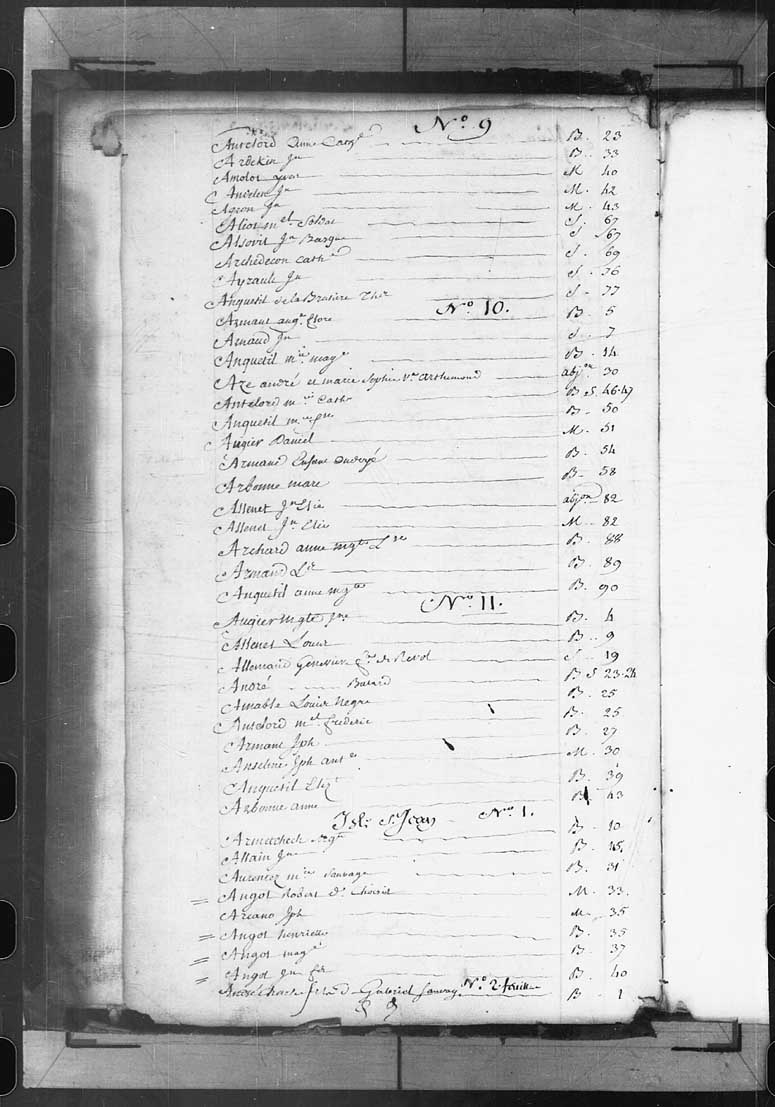 No. 9
Antelord Anne Cath.e B. 23
Ardekin Jn B. 33
Amolot yvon M. 40
Ancelin Jn M. 42
Agron Jn M. 43
Aliot m.el Soldat S. 67
Alsovit Jn Basque S. 67
Archedecon Cath.e S. 69
Ayrault Jn S. 76
Anquetil de la Bratiere Ther S. 77
No. 10.
Armant aug.e B. 5
Arnaud Jn S. 7
Anquetil m.ie mag.e B. 14
Aze andré et marie Sophie V.ve arthemond abj.on 30
Antelord m.ie Cath. B S. 46-47
Anquetil m.ie B. 50
Augier Daniel M. 51
Armand Enfant ondoyé B. 54
Arbonne marc B. 58
Assenet Jn Elie abj.on 82
Assenet Jn Elie M. 82
Archard anne mg.te L.se B. 88
Armand B. 89
Anquetil anne mg.te B. 90
No. 11.
Augier Mg.te B. 4
Assenet Louis B. 9
Allemand Genevieve de Revol S. 19
André Batard B S. 23-24
Amable Louis Negre B. 25
Antelord m.el frederic B. 25
Armant Jph B. 27
Anseline Jph ant.e M. 30
Anquetil Eliz.t B. 39
Arbonne anne B. 43
Isle St. Jean No. 1.
Armetcheck B. 10
Allain Jn B. 15
m.ie Sauvage B. 31
Angot Robert d. Choisit M. 33
Arcano Jph M. 35
Angot henriette B. 35
Angot mag.e B. 37
Angot Jn B. 40
No. 2. feuille
Gabriel B. 1